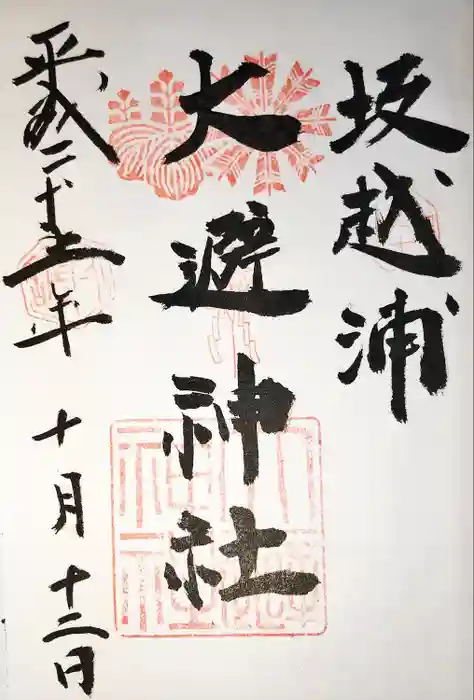 坂越浦
大避神社
平成二十五年十月十二日